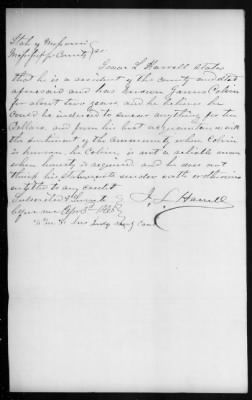 State of Missouri
Mississippi County } SS
Isaac L Harrell states
that he is a resident of the county and state
aforesaid and has known James Colvin
for about two years and he believes he
could be induced to swear anything for ten
Dollars, and from his best acquaintance with
the sentiment of the community where Colvin
is known, he Colvin, is not a reliable man
when honesty is required and he does not
think his statements under oath or otherwise
entitled to any credit
Subscribed & Sworn to
before me Apr 3rd
I. L. Harrell